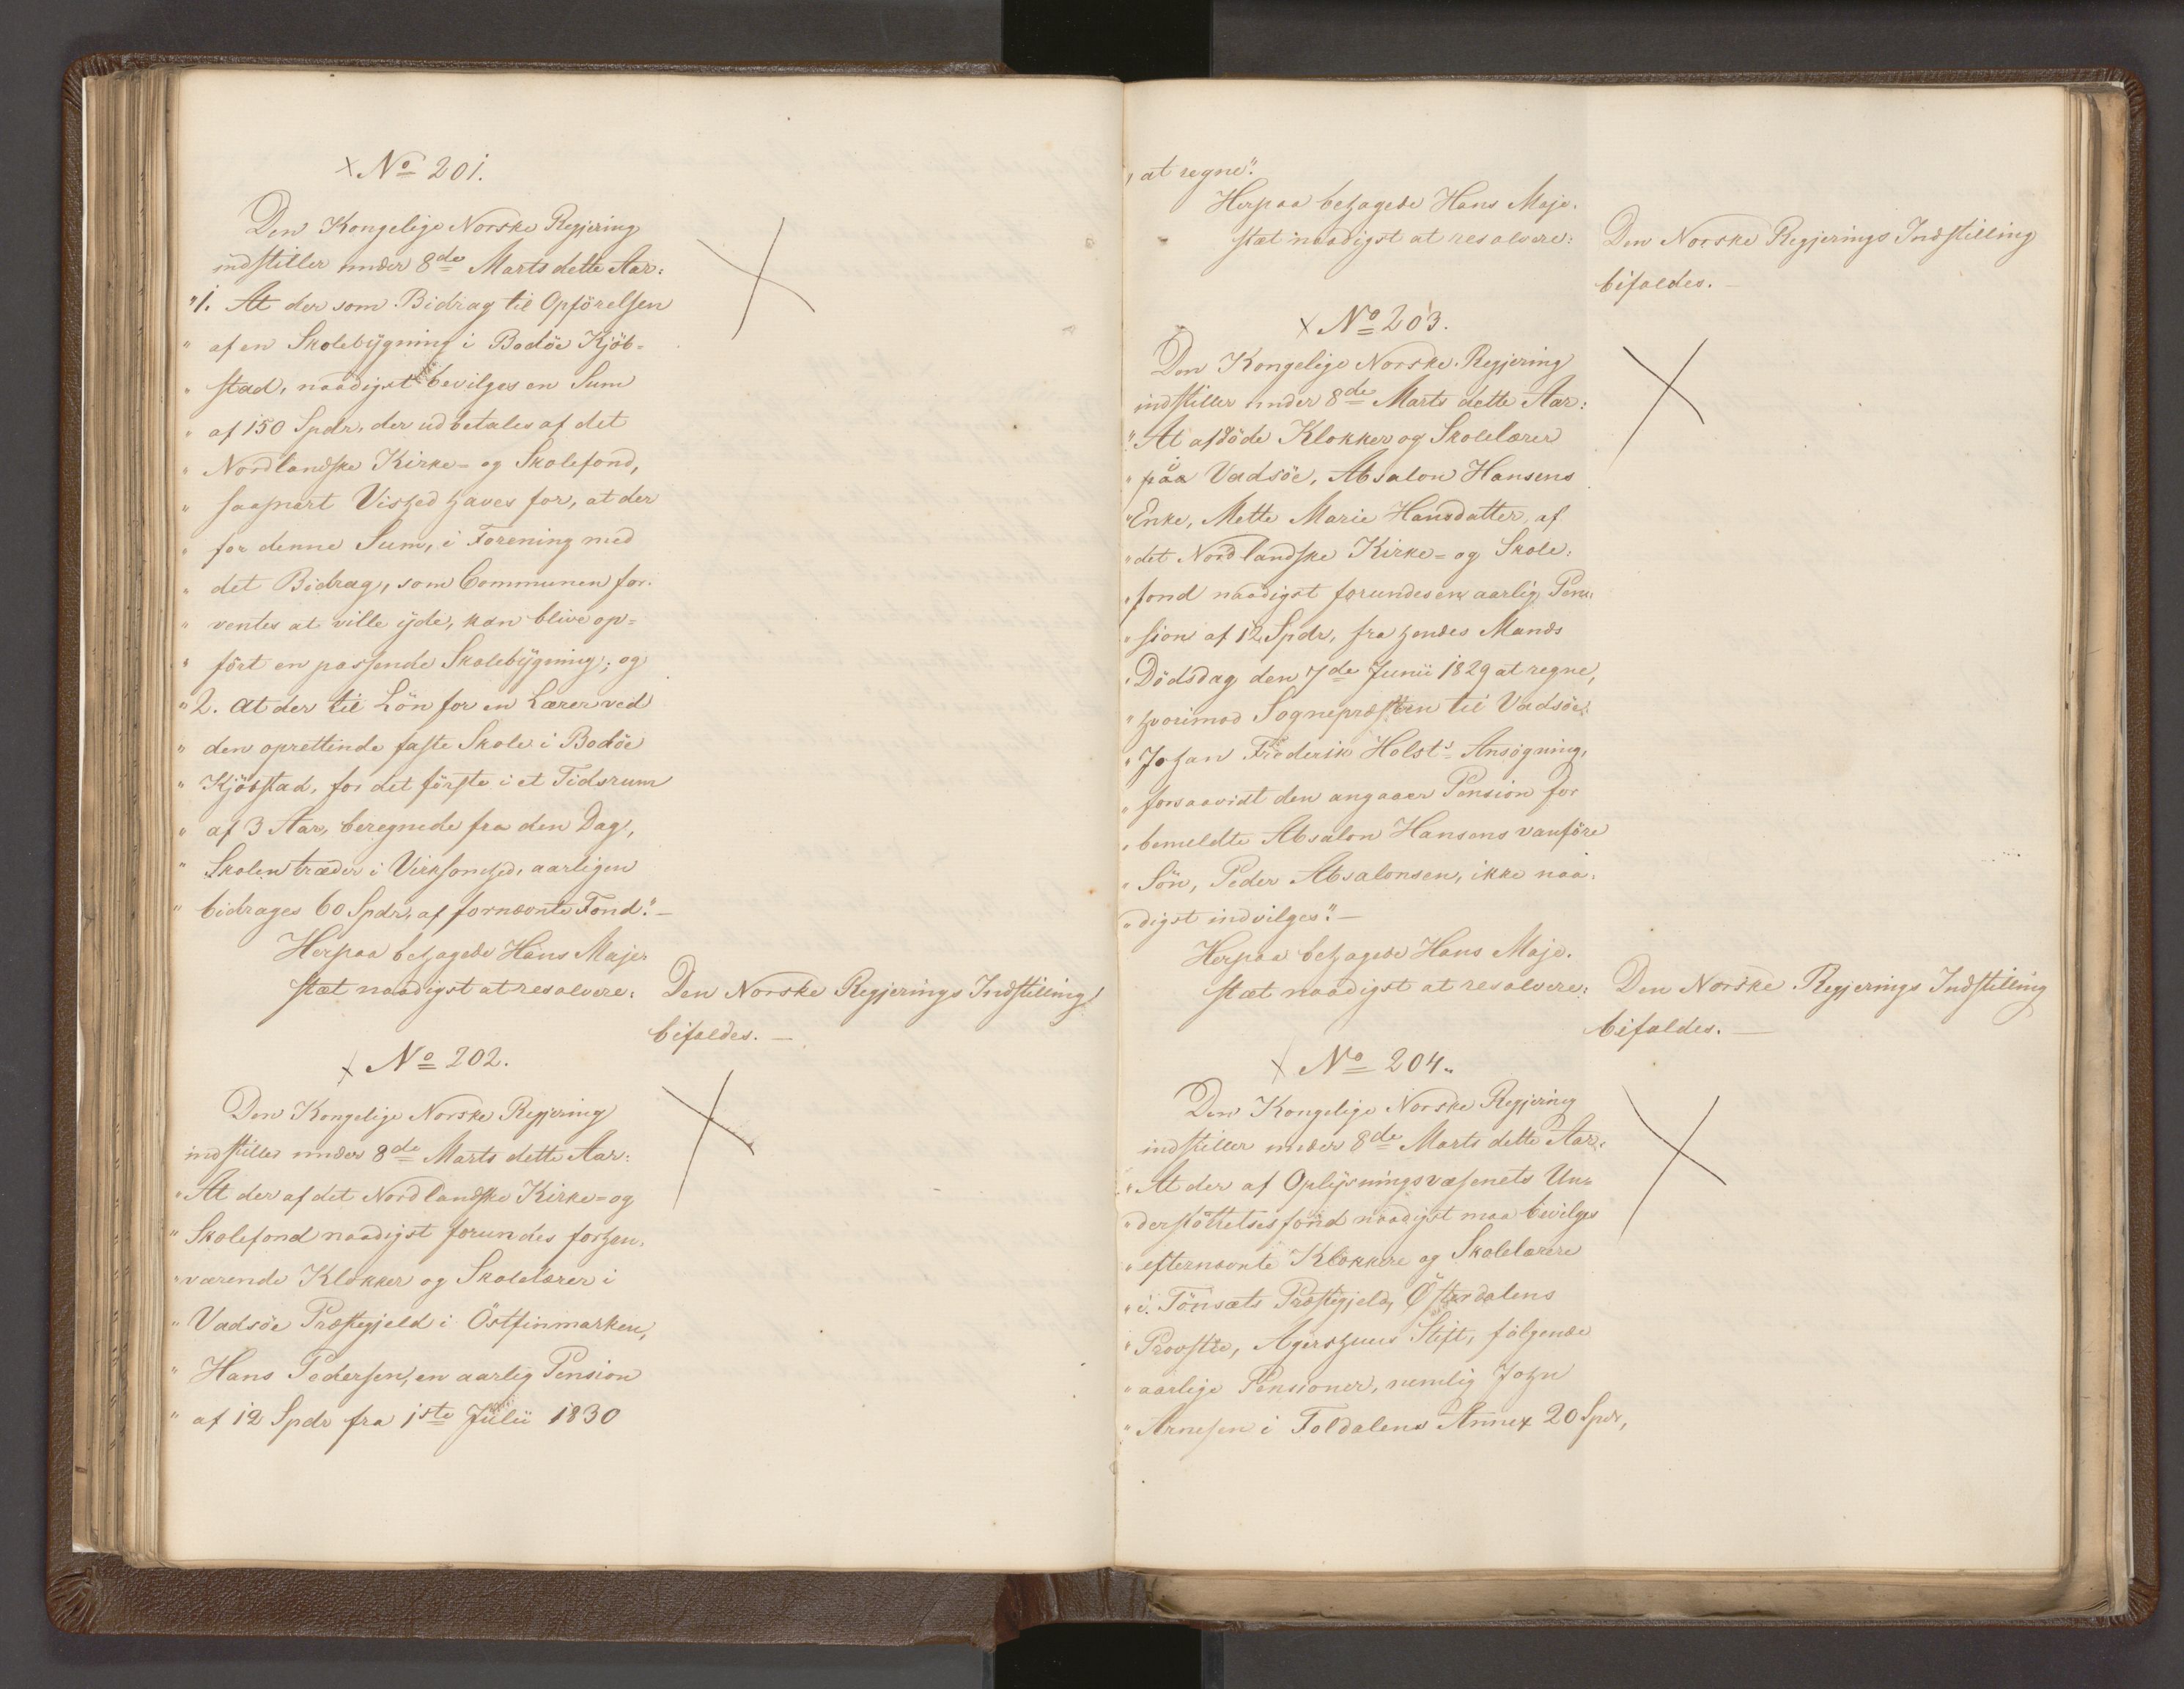 × No 201.
Den Kongelige Norske Regjering
indstiller under 8de Marts dette Aar:
"1. At der som Bidrag til Opförelsen
" af en Skolebygning i Bodöe Kjöb-
" stad, naadigst bevilges en Sum
" af 150 Spdr, der udbetales af det
" Nordlandske Kirke- og Skolefond,
" saasnart Vished haves for, at der
" for denne Sum, i Forening med
" det Bidrag, som Communen for-
" ventes at ville yde, kan blive op-
" fört en passende Skolebygning; og
" 2. at der til Lön for en Lærer ved
" den oprettende faste Skole i Bodöe
" Kjöbstad, for det förste i et Tidsrum
" af 3 Aar, beregnede fra den Dag,
" Skolen træder i Virksomhed, aarligen
" bidrages 60 Spdr, af fornævnte Fond." —
Herpaa behagede Hans Maje-
stæt naadigst at resolvere:
Den Norske Regjerings Indstilling
bifaldes. —
× No 202.
Den Kongelige Norske Regjering
indstiller under 8de Marts dette Aar:
"At der af det Nordlandske Kirke- og
" Skolefond naadigst forundes forhen-
" værende Klokker og Skolelærer i
" Vadsöe Præstegjeld i Östfinmarken,
" Hans Pedersen, en aarlig Pension
" af 12 Spdr fra 1ste Julii 1830
" at regne".
Herpaa behagede Hans Maje-
stæt naadigst at resolvere:
Den Norske Regjerings Indstilling
bifaldes. —
× No 203.
Den Kongelige Norske Regjering
indstiller under 8de Marts dette Aar:
"At afdöde Klokker og Skolelærer
" paa Vadsöe, Absalon Hansens
" Enke, Mette Marie Hansdatter, af
" det Nordlandske Kirke- og Skole-
" fond naadigst forundes en aarlig Pen-
" sion af 12 Spdr, fra hendes Mands
" Dödsdag den 7de Junii 1829 at regne,
" hvorimod Sognepræsten til Vadsöe,
" Johan Fröderik Holst's Ansögning,
" forsaavidt den angaaer Pension for
" bemeldte Absalon Hansens vanföre
" Sön, Peder Absalonsen, ikke naa-
" digst indvilges". —
Herpaa behagede Hans Maje-
stæt naadigst at resolvere:
Den Norske Regjerings Indstilling
bifaldes. —
× No 204.
Den Kongelige Norske Regjering
indstiller under 8de Marts dette Aar:
"At der af Oplysningsvæsenets Un-
" derstöttelsesfond naadigst maa bevilges
" efternævnte Klokkere og Skolelærere
" i Tönsæts Præstegjeld, Østerdalens
" Provstie, Agershuus Stift, følgende
" aarlige Pensioner, nemlig John
" Arnesen i Foldalens Annex 20 Spdr,